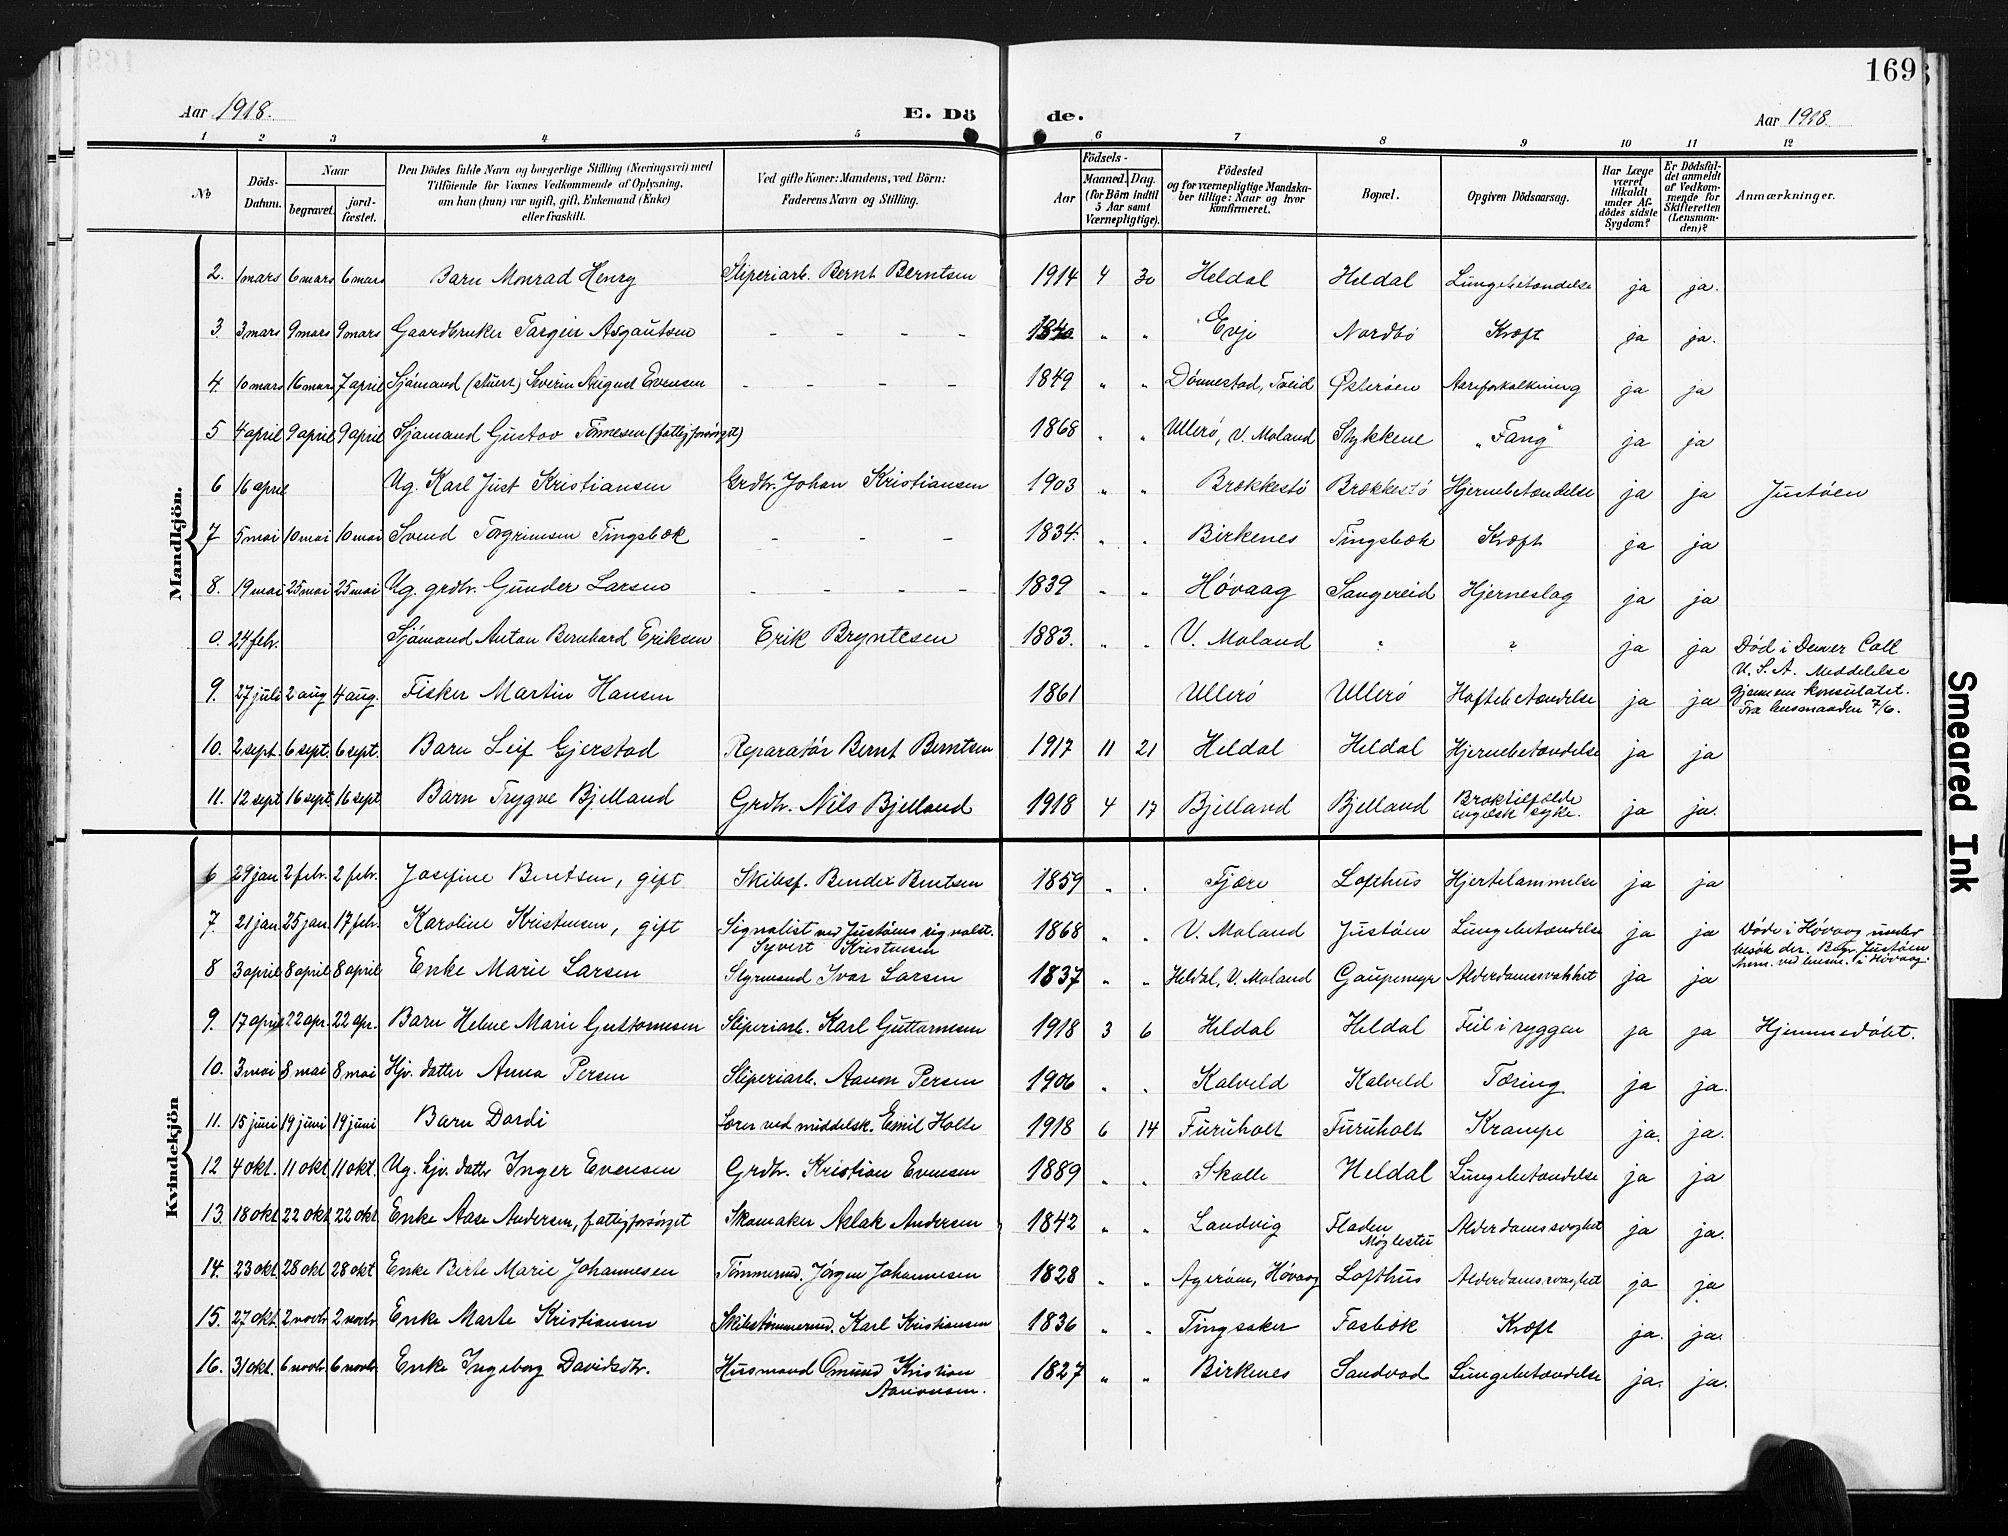 169
Aar 1918.
E. Dö de.
Aar 1918.
1 2 3 4 5 6 7 8 9 10 11 12
No
Döds-Datum.
Naar
begravet.
jordfæstet.
Den Dödes fulde Navn og borgerlige Stilling (Næringsvei) med Tilföiende for Voxnes Vedkommende af Oplysning, om han (hun) var ugift, gift, Enkemand (Enke) eller fraskilt.
Ved gifte Koner: Mandens, ved Börn: Faderens Navn og Stilling.
Födsels-
Aar
Maaned. Dag.
(for Börn indtil 5 Aar samt Værnepligtige).
Födested og for værnepligtige Mandskaber tillige: Naar og hvor konfirmeret.
Bopæl.
Opgiven Dödsaarsag.
Har Læge været tilkaldt under Afdödes sidste Sygdom?
Er Dödsfaldet anmeldt af Vedkommende for Skifteretten (Lensmanden)?
Anmærkninger.
Mandkjön.
2. 1 mars 6 mars 6 mars Barn Monrad Henry Sliperiarb. Bernt Berntsen 1914 4 30 Heldal Heldal Lungebetændelse ja ja.
3. 3 mars 9 mars 9 mars Gaardbruker Targein Asgautsen - - - - 1840 " " Evje Nordbö Kræft ja ja.
4. 10 mars 16 mars 7 april Sjømand (stuert) Severin August Evensen - - - - 1849 " " Dønnestad, Tveid Østerøen Aareforkalkning ja ja
5 4 april 9 april 9 april Sjømand Gustav Tønnesen (fattigforsørget) 1868 " " Ullerø, V. Moland Stykkene "Fang" ja ja
6 16 april Ug. Karl Just Kristiansen Grdbr. Johan Kristiansen 1903 " " Brækkestø Brækkestø Hjernebetændelse ja ja Justøen
7 5 mai 10 mai 10 mai Svend Torgrimsen Tingsbæk - - - 1834. " " Birkenes Tingsbæk Kræft ja ja
8. 19 mai 25 mai 25 mai Ug. grdbr. Gunder Larsen - - - - 1839 " " Høvaag Sangereid Hjerneslag ja ja
0. 24 febr. Sjømand Anton Bernhard Eriksen Erik Bryntesen 1883. " " V. Moland " " ja ja Død i Denver Coll
U. S. A. Meddelelse
gjennem konsulatet.
Fra lensmanden 7/6.
9. 27 juli 2 aug 4 aug. Fisker Martin Hansen 1861 Ullerø Ullerø Hoftebetændelse ja ja
10. 2 sept. 6 sept. 6 sept. Barn Leif Gjerstad Reparatør Bernt Berntsen 1917 11 21 Heldal Heldal Hjernebetændelse ja ja
11. 12 sept 16 sept 16 sept Barn Trygve Bjelland Grdbr. Nils Bjelland 1918 4 17 Bjelland Bjelland Broktilfælde
engelsk syke. ja ja.
Kvindekjön
6 29 jan 2 febr. 2 febr. Josefine Bentsen, gift Skibsf. Bendix Bentsen 1859 " " Fjære Lofthus Hjertelammelse ja ja
7. 21 jan 25 jan. 17 febr. Karoline Kristensen, gift Signalist ved Justøens signalst.
Syvert Kristensen 1868 " " V. Moland Justøen Lungebetændelse ja ja Døde i Høvaag under
besøk der. Bør Justøen
Anm. ved lensm. i Høvaag.
8 3 april 8 april 8 april Enke Marie Larsen Styrmand Ivar Larsen 1837 " " Heldal, V. Moland Gaupemyr Alderdomssvakhet ja ja
9. 17 april 22 apr. 22 apr. Barn Helene Marie Guttormesen Sliperiarb. Karl Guttormesen 1918 3 6 Heldal Heldal Feil i ryggen ja ja Hjemmedøbt.
10. 3 mai 8 mai 8 mai Hjv. datter Anna Persen Sliperiarb. Aanon Persen 1906 " " Kalveld Kalveld Tæring ja ja.
11. 15 juni 19 juni 19 juni Barn Dordi Lærer ved middelsk. Emil Holte 1918 6 14 Furuholt Furuholt Krampe ja. ja.
12 4 okt. 11 okt 11 okt. Ug. hjv. datter Inger Evensen Grdbr. Kristian Evensen 1889 " " Skalle Heldal Lungebetændelse ja ja
13. 18 okt 22 okt 22 okt Enke Aase Andersen, fattigforsørget Skomaker Aslak Andersen 1842 " " Landvig Fladen
Møglestu Alderdomssvaghet ja ja.
14. 23 okt 28 okt 28 okt Enke Birte Marie Johannesen Tømmermd. Jørgen Johannesen 1828 " " Agerøen, Høvaag Lofthus Alderdomssvaghet ja ja
15. 27 okt. 2 novbr 2 novbr Enke Marte Kristiansen Skibstømmermd. Karl Kristiansen 1836 " " Tingsaker Fosbæk Kræft ja. ja.
16. 31 okt. 6 novbr. 6 novbr. Enke Ingeborg Davidsdtr. Husmand Omund Kristian
Aanonsen. 1827 " " Birkenes Sandvad Lungebetændelse ja. ja.
Smeared Ink